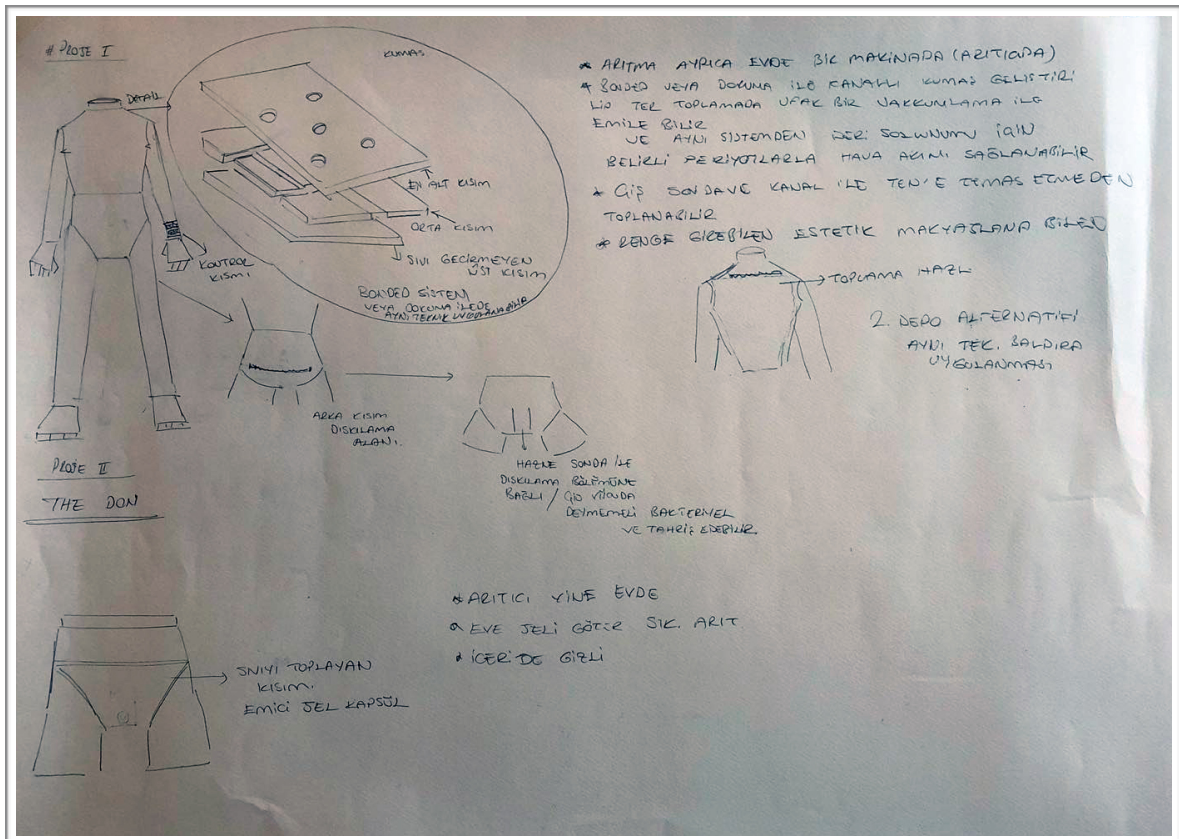 # PROJE I
DETAIL
KUMAŞ
EN ALT KISIM
ORTA KISIM
SIVI GEÇİRMEYEN
ÜST KISIM
BONDED SİSTEM
VEYA DOKUMA İLEDE
AYNI TEKNİK UYGULANABİLİR
KONTROL
KISMI
ARKA KISIM
DIŞKILAMA
ALANI.
HAZNE SONDA İLE
DIŞKILAMA BÖLÜMÜNE
BAĞLI /
DEYMEMELİ BAKTERİYEL
VE TAHRİŞ EDEBİLİR.
* ARITMA AYRICA EVDE BİR MAKİNADA (ARITICIDA)
* BONDED VEYA DOKUMA İLE KANALLI KUMAŞ GELİŞTİRİ
LİP TER TOPLAMADA UFAK BİR VAKKUMLAMA İLE
EMİLE BİLİR
VE AYNI SİSTEMDEN DERİ SOLUNUMU İÇİN
BELİRLİ PERİYOTLARLA HAVA AKIMI SAĞLANABİLİR
* ÇİŞ SONDAVE KANAL İLE TEN'E TEMAS ETMEDEN
TOPLANABİLİR
* RENGE GİREBİLEN ESTETİK MAKYAJLANA BİLEN
TOPLAMA HAZ.
2. DEPO ALTERNATİFİ
AYNI TEK. BALDIRA
UYGULANMASI
PROJE II
THE DON
SIVIYI TOPLAYAN
KISIM.
EMİCİ JEL KAPSÜL
* ARITICI YİNE EVDE
* EVE JELİ GÖTÜR SIK. ARIT
* İÇERİDE GİZLİ